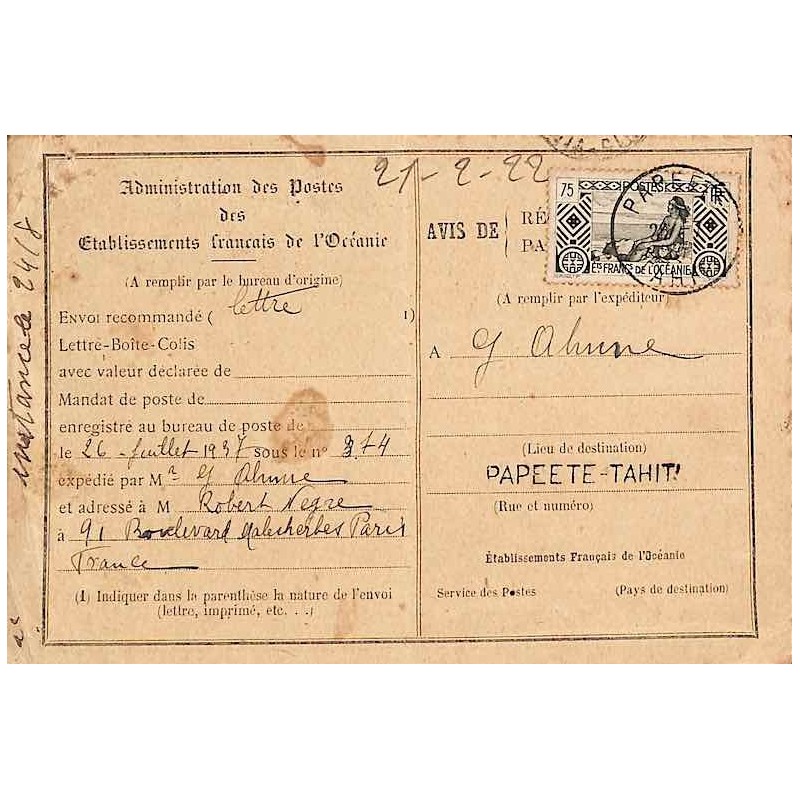 21-2-22
Administration des Postes
des
Etablissements français de l'Océanie
(A remplir par le bureau d'origine)
Envoi recommandé ( lettre 1)
Lettre-Boîte-Colis
avec valeur déclarée de
Mandat de poste de
enregistré au bureau de poste de
le 26 Juillet 1937 sous le n° 374
expédié par Mr G Ahnne
et adressé à M Robert Negre
à 91 Boulevard Malesherbes Paris
France
(1) Indiquer dans la parenthèse la nature de l'envoi
(lettre, imprimé, etc. . .)
instance 24/8
AVIS DE
RÉ
PA
75 POSTES
ETS FRANÇS DE L'OCÉANIE
PAPEETE
(A remplir par l'expéditeur
A G Ahnne
(Lieu de destination)
PAPEETE-TAHITI
(Rue et numéro)
Établissements Français de l'Océanie
Service des Postes (Pays de destination)